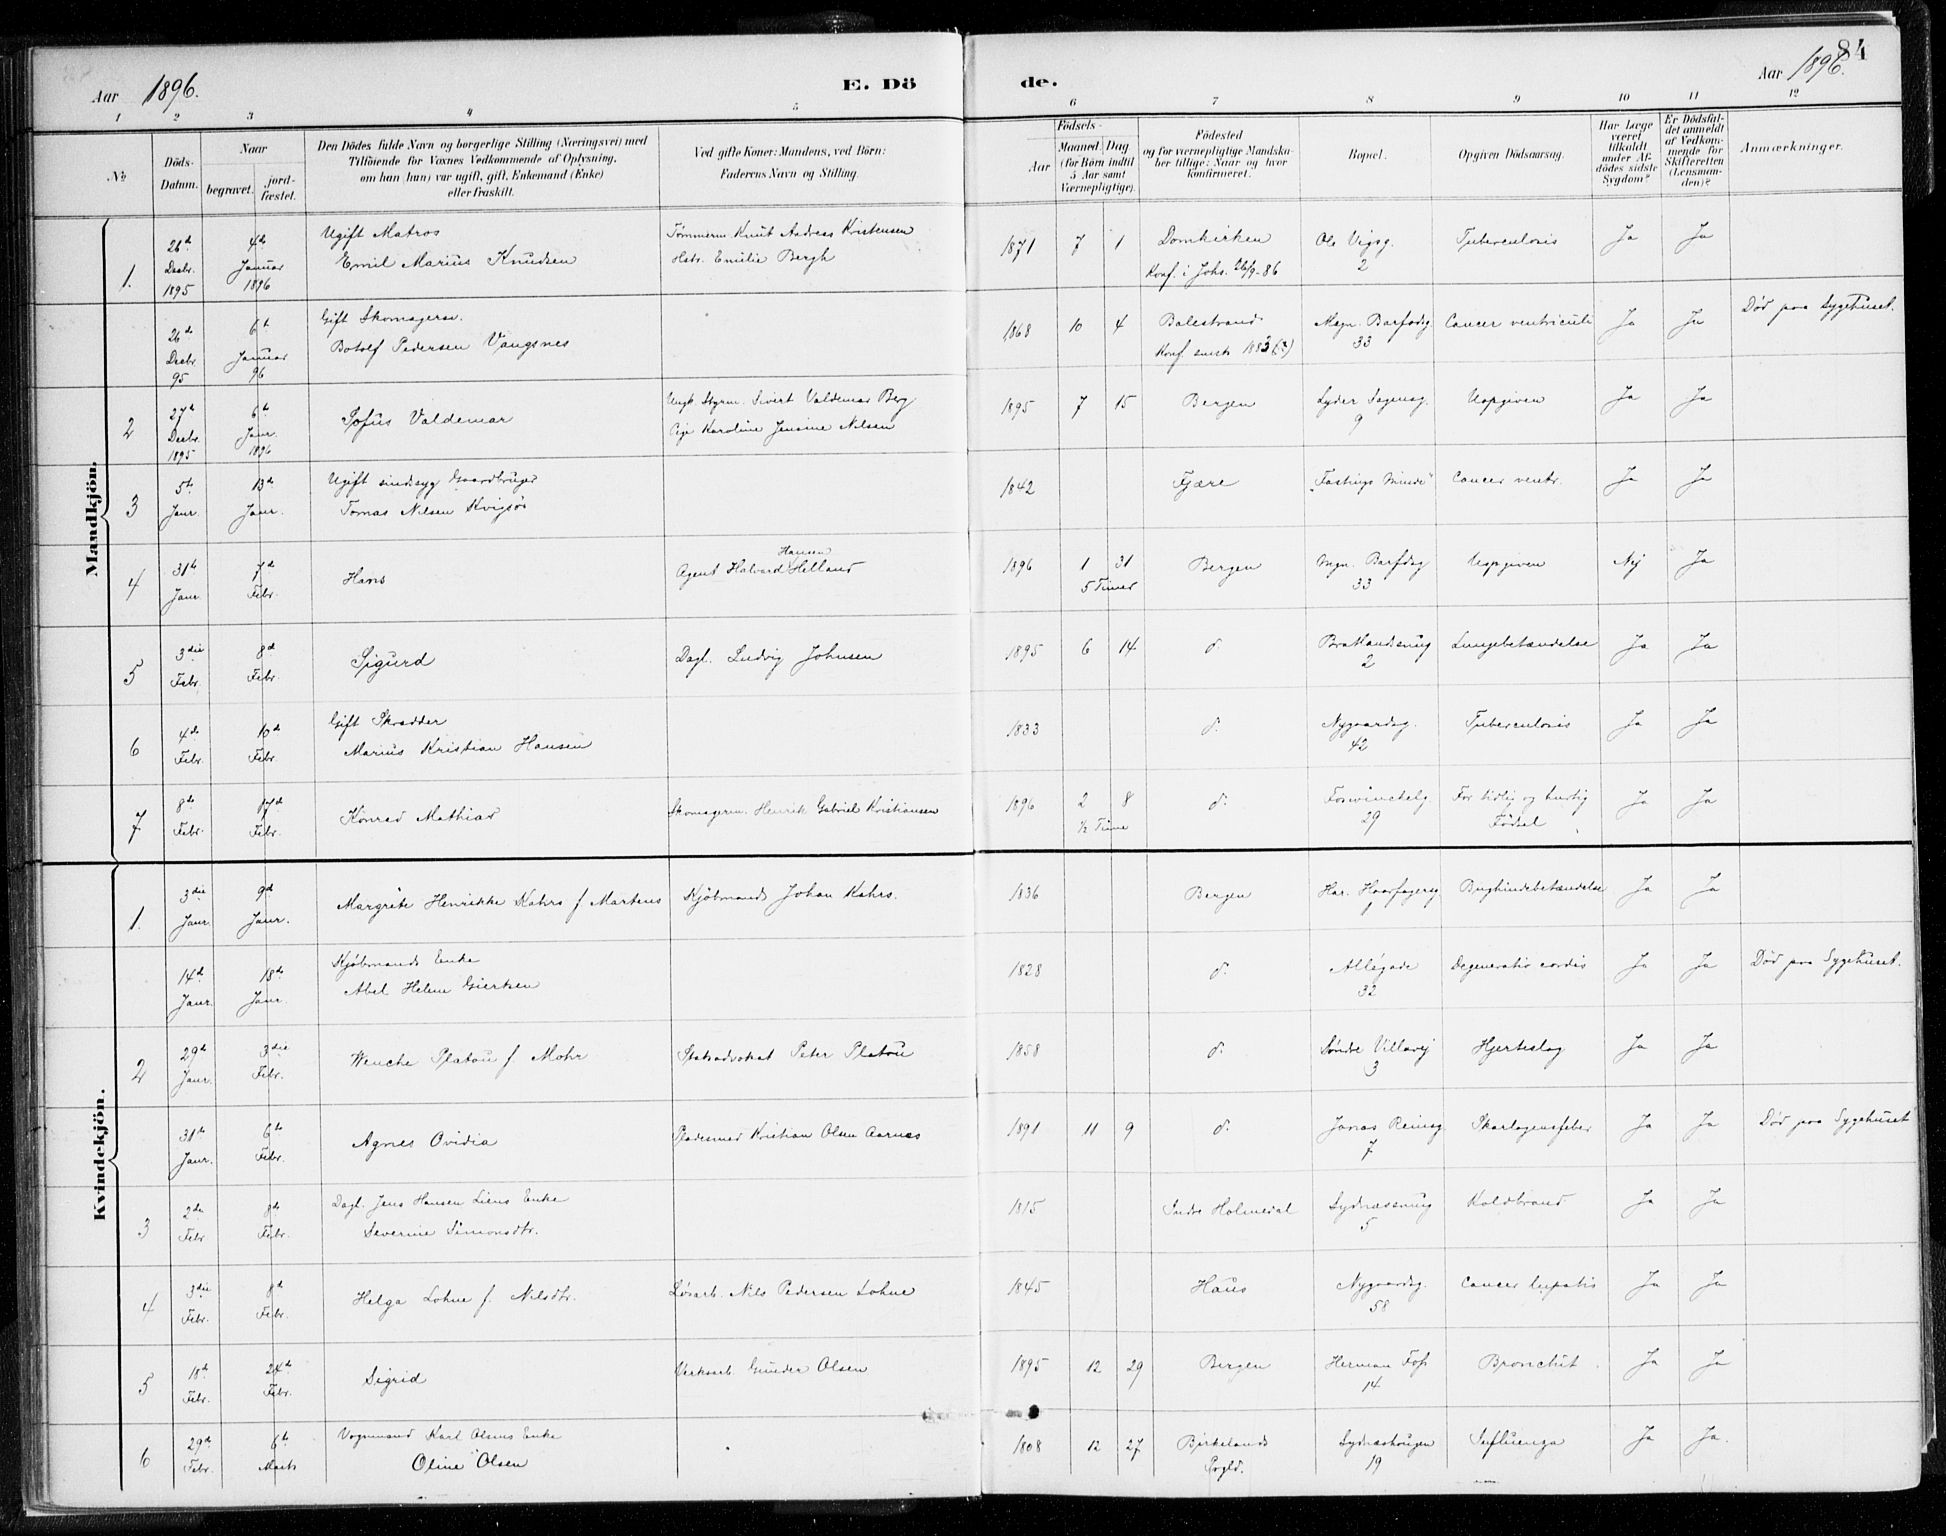 84
Aar 1896.
E. Döde.
Aar 1896.
1 2 3 4 5 6 7 8 9 10 11 12
No
Döds-Datum.
Naar
begravet.
jordfæstet.
Den Dödes fulde Navn og borgerlige Stilling (Næringsvei) med
Tilföiende for Voxnes Vedkommende af Oplysning,
om han (hun) var ugift, gift, Enkemand (Enke)
eller fraskilt.
Ved gifte Koner: Mandens, ved Börn:
Faderens Navn og Stilling.
Födsels-
Aar
Maaned. Dag
(for Börn indtil
5 Aar samt
Værnepligtige).
Födested
og for værnepligtige Mandska-
ber tillige: Naar og hvor
konfirmeret.
Bopæl.
Opgiven Dödsaarsag.
Har Læge
været
tilkaldt
under Af-
dödes sidste
Sygdom?
Er Dödsfal-
det anmeldt
af Vedkom-
mende for
Skifteretten
(Lensman-
den)?
Anmærkninger.
Mandkjön.
1. 26de Decbr. 1895 4de Januar 1896 Ugift Matros Emil Marius Knudsen Tømmerm. Knut Andreas Kristensen Hstr. Emilie Bergh 1871 7 1 Domkirken Konf. i Johs. 26/9-86 Ole Vigsg. 2 Tuberculosis Ja Ja
26de Decbr. 95 6te Januar 96 Gift Skomagersv. Botolf Pedersen Vangsnes 1868 10 4 Balestrand Konf. smsts 1883 (?) Magn. Barfodsg 33 Cancer ventriculi Ja Ja Død paa Sygehuset.
2 27de Decbr. 1895 6te Janr. 1896 Sofus Valdemar Ungk. Styrm. Sivert Valdemar Berg Pige Karoline Jensine Nilsen 1895 7 15 Bergen Lyder Sagensg. 9 Uopgiven Ja Ja
3 5te Janr. 13de Janr. Ugift sindssyg Gaardbruger Tomas Nilsen Kvigsø 1842 Fjære "Fastings Minde" Cancer ventr. Ja Ja
4 31te Janr. 7de Febr. Hans Agent Halvard Hansen Helland 1896 1 31 5 Timer Bergen Mgn. Barfdsg 33 Uopgiven Nej Ja
5 3die Febr. 8de Febr. Sigurd Dagl. Ludvig Johnsen 1895 6 14 d. Bratlandsmug 2 Lungebetændelse Ja Ja
6 4de Febr. 10de Febr. Gift Skrædder Marius Kristian Hansen 1833 d. Nygaardsg. 42 Tuberculosis Ja Ja
7 8de Febr. 17de Febr. Konrad Mathias Skomagerm. Henrik Gabriel Kristiansen 1896 2 8 1/2 Time d. Forvinckelg. 29 For tidlig og hurtig Fødsel Ja Ja
Kvindekjön.
1. 3die Janr. 9de Janr. Margrete Henrikke Kahrs f. Martens Kjøbmand Johan Kahrs. 1836 Bergen Har. Haarfagersg 1 Bughindebetændelse Ja Ja
14de Janr. 18de Janr. Kjøbmands Enke Abel Helene Giertsen 1828 d. Allégade 32 Degeneratio cordis Ja Ja Død paa Sygehuset.
2 29de Janr. 3die Febr. Wenche Platou f. Mohr Statsadvokat Peter Platou 1858 d. Søndre Villavej 3 Hjerteslag Ja Ja
31te Janr. 6te Febr. Agnes Ovidia Pladesmed Kristian Olsen Aarnes 1891 11 9 d. Jonas Reinsg 7 Skarlagensfeber Ja Ja Død paa Sygehuset
3 2de Febr 8de Febr. Dagl. Jens Hansen Liens Enke Severine Simonsdtr. 1815 Indre Holmedal Sydnæssmug 5 Koldbrand Ja Ja
4 3die Febr. 8de Febr. Helga Lohne f. Nilsdtr. Løsarb. Nils Pedersen Lohne 1845 Haus Nygaardsg. 58 Cancer hepatis Ja Ja
5 18de Febr. 24de Febr. Sigrid Værksarb. Gunder Olsen 1895 12 29 Bergen Herman Foss 14 Bronchit. Ja Ja
6 29de Febr. 6te Marts Vognmand Karl Olsens Enke Oline Olsen 1808 12 27 Birkelands Prgld. Sydneshougen 19 Influenza Ja Ja.